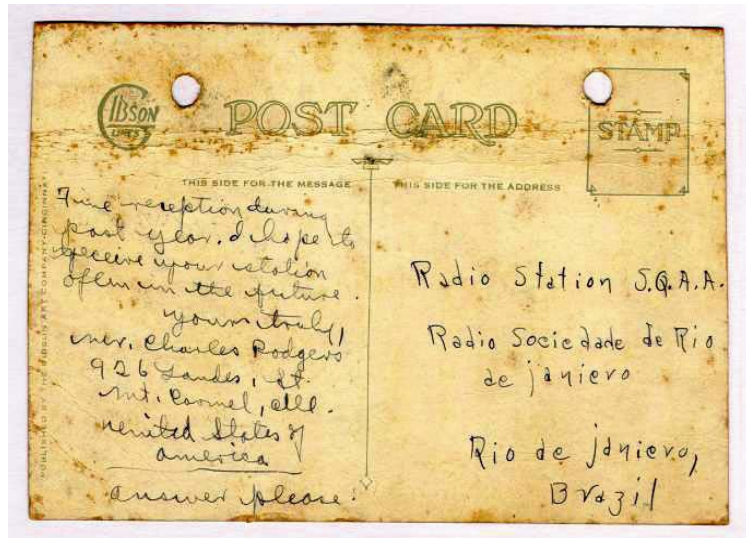 GIBSON
POST CARD
STAMP
THIS SIDE FOR THE MESSAGE
THIS SIDE FOR THE ADDRESS
PUBLISHED BY THE GIBSON ART COMPANY-CINCINNATI
Fine reception during
past year. I hope to
receive your station
often in the future.
yours truly,
mr. Charles Rodgers
926 Landes, St.
mt. Carmel, Ill.
United States of
america
answer please!
Radio Station S.Q.A.A.
Radio Sociedade de Rio
de janievo
Rio de janievo,
Brazil